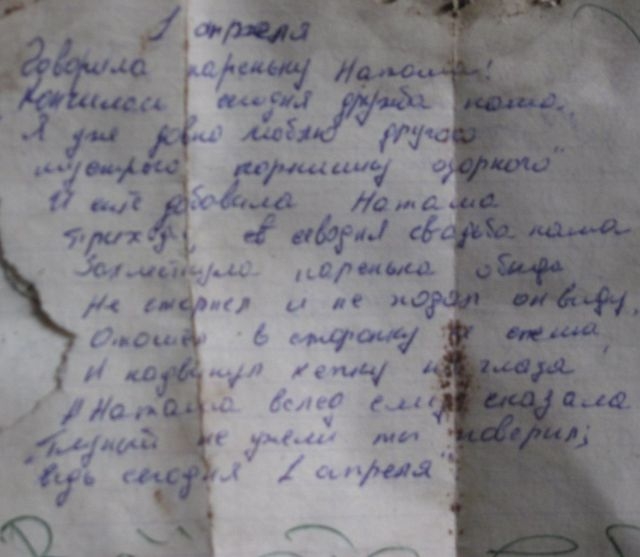 1 апреля
Говорила пареньку Наташа!
Кончилась сегодня дружба наша..
Я уже довно люблю другого
шустрого парнишку озорного"
И ещё добовила Наташа
Приходи, сегодня свадьба наша
Захлестнула паренька обида
Не стерпел и не подал он виду,
Отошел в сторонку не спеша,
И надвинул кепку на глаза
А Наташа вслед ему сказала
"Глупый не ужели ты поверил;
ведь сегодня 1 апреля"